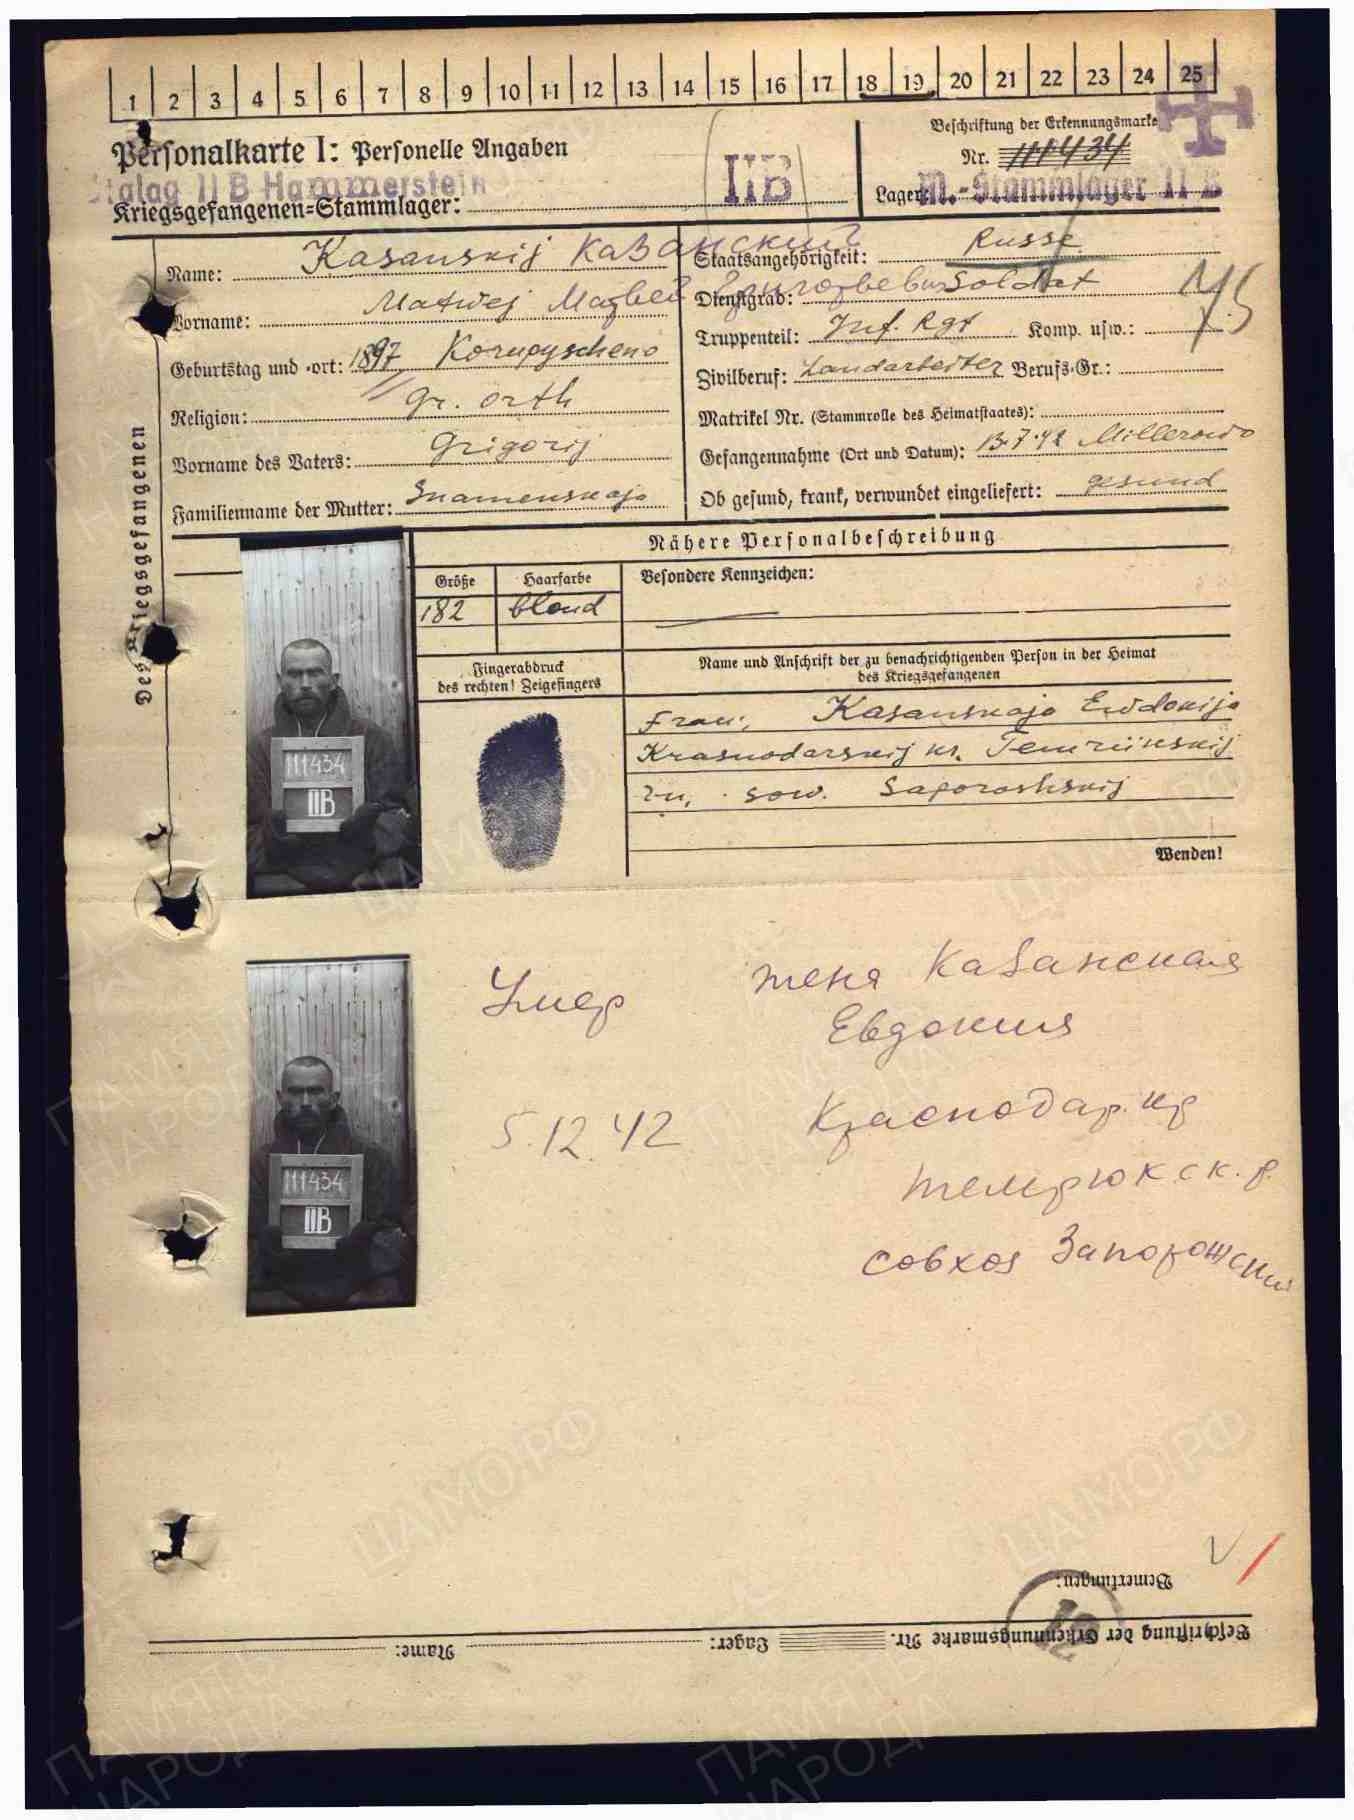 1 2 3 4 5 6 7 8 9 10 11 12 13 14 15 16 17 18 19 20 21 22 23 24 25
Personalkarte I: Personelle Angaben
Stalag II B Hammerstein
Kriegsgefangenen-Stammlager:
IIB
Beschriftung der Erkennungsmarke
Nr. 111434
Lager: M.-Stammlager II B
Des Kriegsgefangenen
Name: Kasanskij Казанский
Vorname: Matwej Матвей Григорьевич
Geburtstag und -ort: 1897
Religion: Gr. orth
Vorname des Vaters: Grigorij
Familienname der Mutter: Snamenskaja
Staatsangehörigkeit: Russe
Dienstgrad: Soldat
Truppenteil: Inf. Rgt Komp. usw.:
Zivilberuf: Landarbeiter Berufs-Gr.:
Matrikel Nr. (Stammrolle des Heimatstaates):
Gefangennahme (Ort und Datum): 13.7.42 Millerowo
Ob gesund, krank, verwundet eingeliefert: gesund
Nähere Personalbeschreibung
Größe Haarfarbe Besondere Kennzeichen:
182 blond
Fingerabdruck
des rechten! Zeigefingers
Name und Anschrift der zu benachrichtigenden Person in der Heimat
des Kriegsgefangenen
Frau: Kasanskaja Ewdokija
Krasnodarskij kr. Temrükskij
sow. Saporoshskij
Wenden!
111434
IIB
111434
IIB
Умер
5.12.42
жена Казанская
Евдокия
Краснодар. кр
темрюкск. р.
совхоз Запорожский
Bemerkungen:
Beschriftung der Erkennungsmarke Nr. Lager: Name:
12
ПАМЯТЬ НАРОДА
ЦАМО.РФ